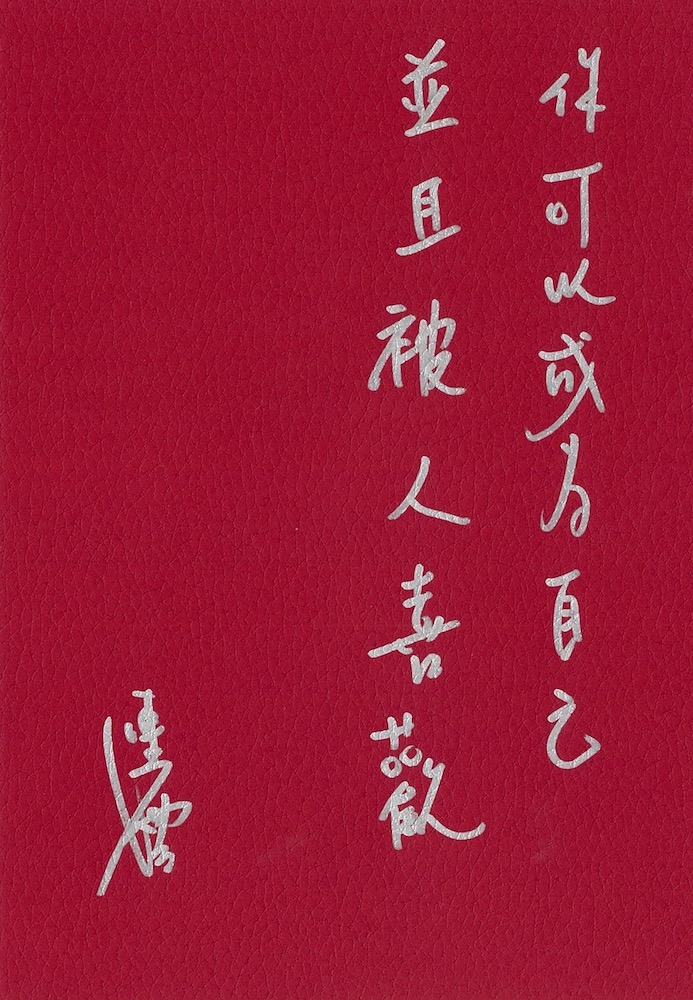 你可以成为自己
並且被人喜歡